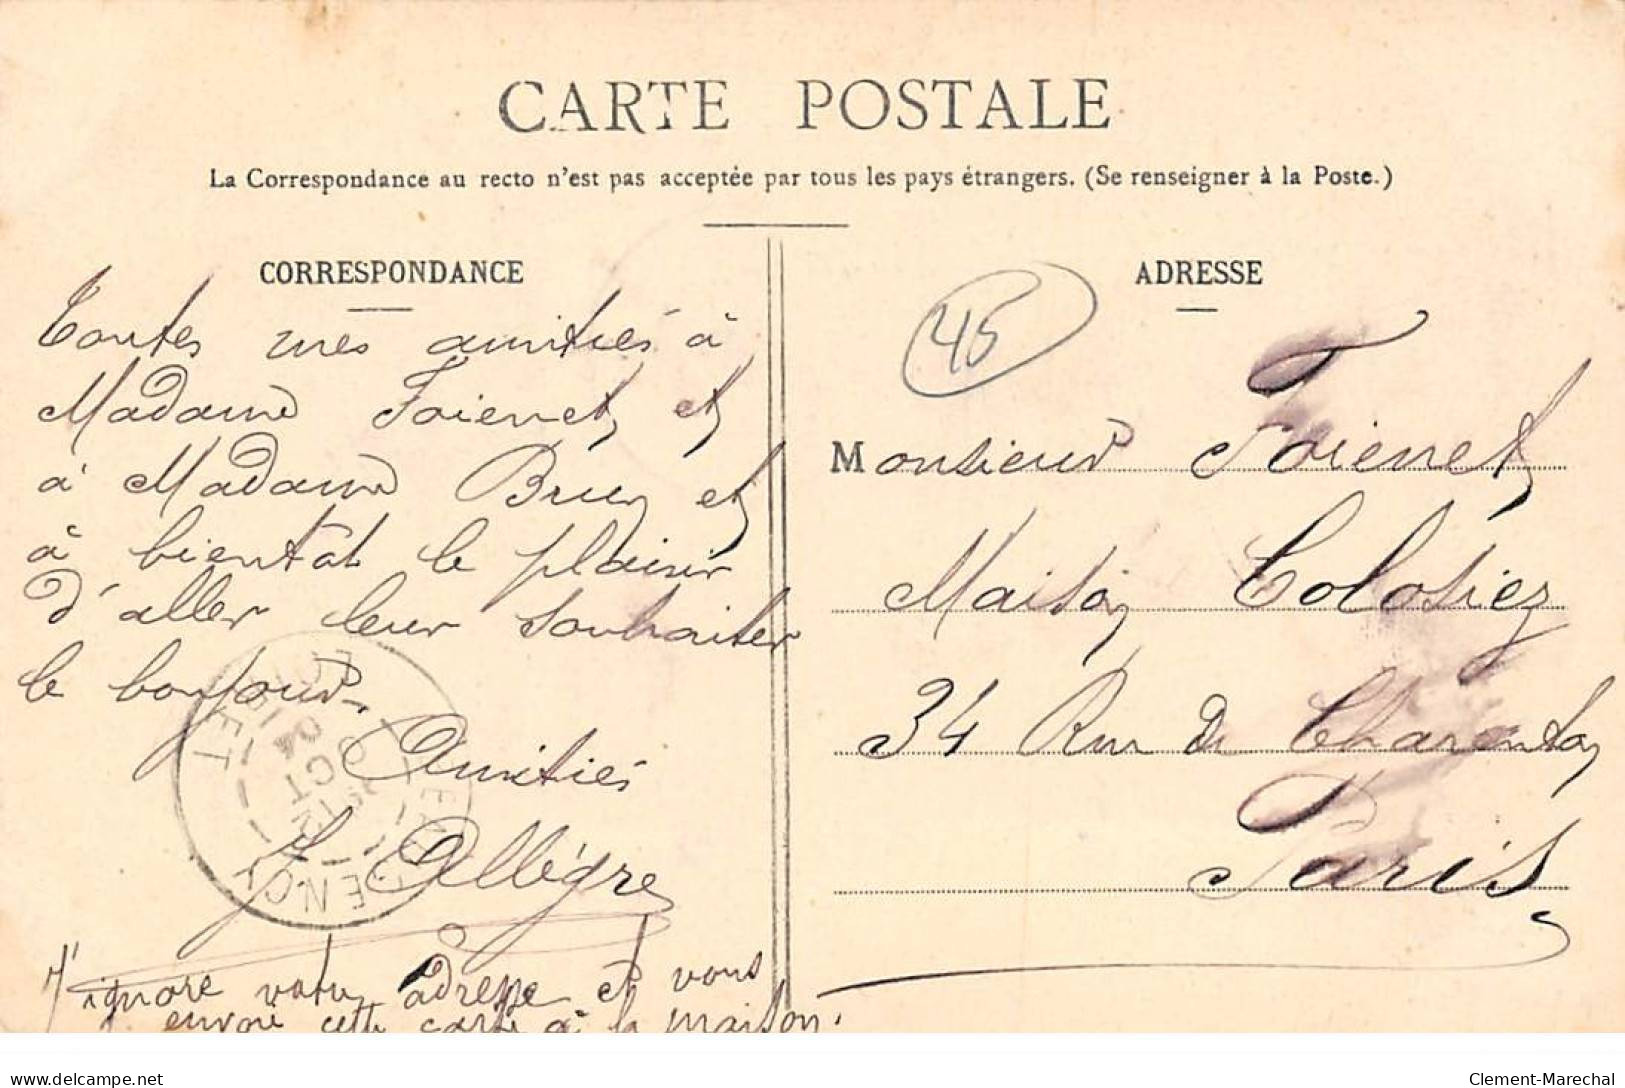 CARTE POSTALE
La Correspondance au recto n'est pas acceptée par tous les pays étrangers. (Se renseigner à la Poste.)
CORRESPONDANCE
Toutes mes amitiés à
Madame Foienet et
à Madame Bruy et
à bientôt le plaisir
d'aller leur souhaiter
le bonjour.
Amitiés
J Allègre
J'ignore votre adresse et vous
envoie cette carte à la maison.
ADRESSE
45
Monsieur Foienet
Maison Colosiez
34 Rue de Charenton
Paris
BEAUGENCY
LOIRET
OCT
04
delcampe.net
Clement-Marechal